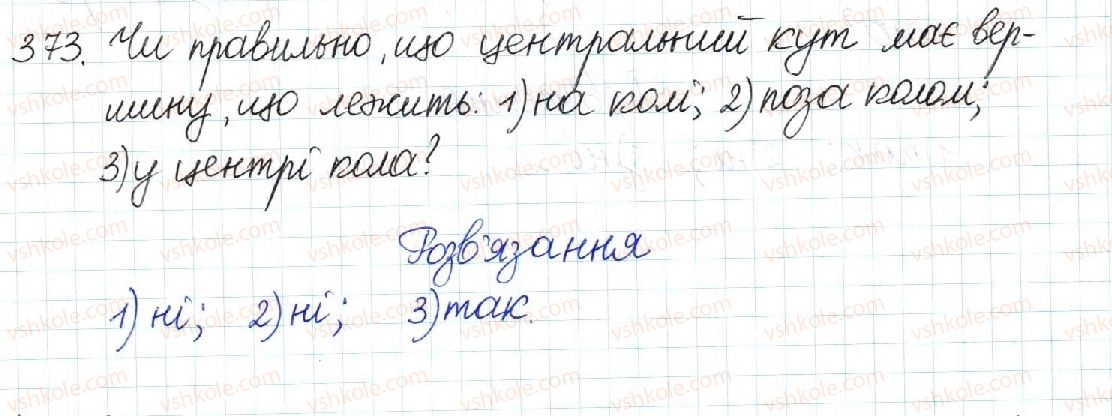 373. Чи правильно, що центральний кут має вер-
шину, що лежить: 1) на колі; 2) поза колом;
3) у центрі кола?
Розв'язання
1) ні; 2) ні; 3) так.